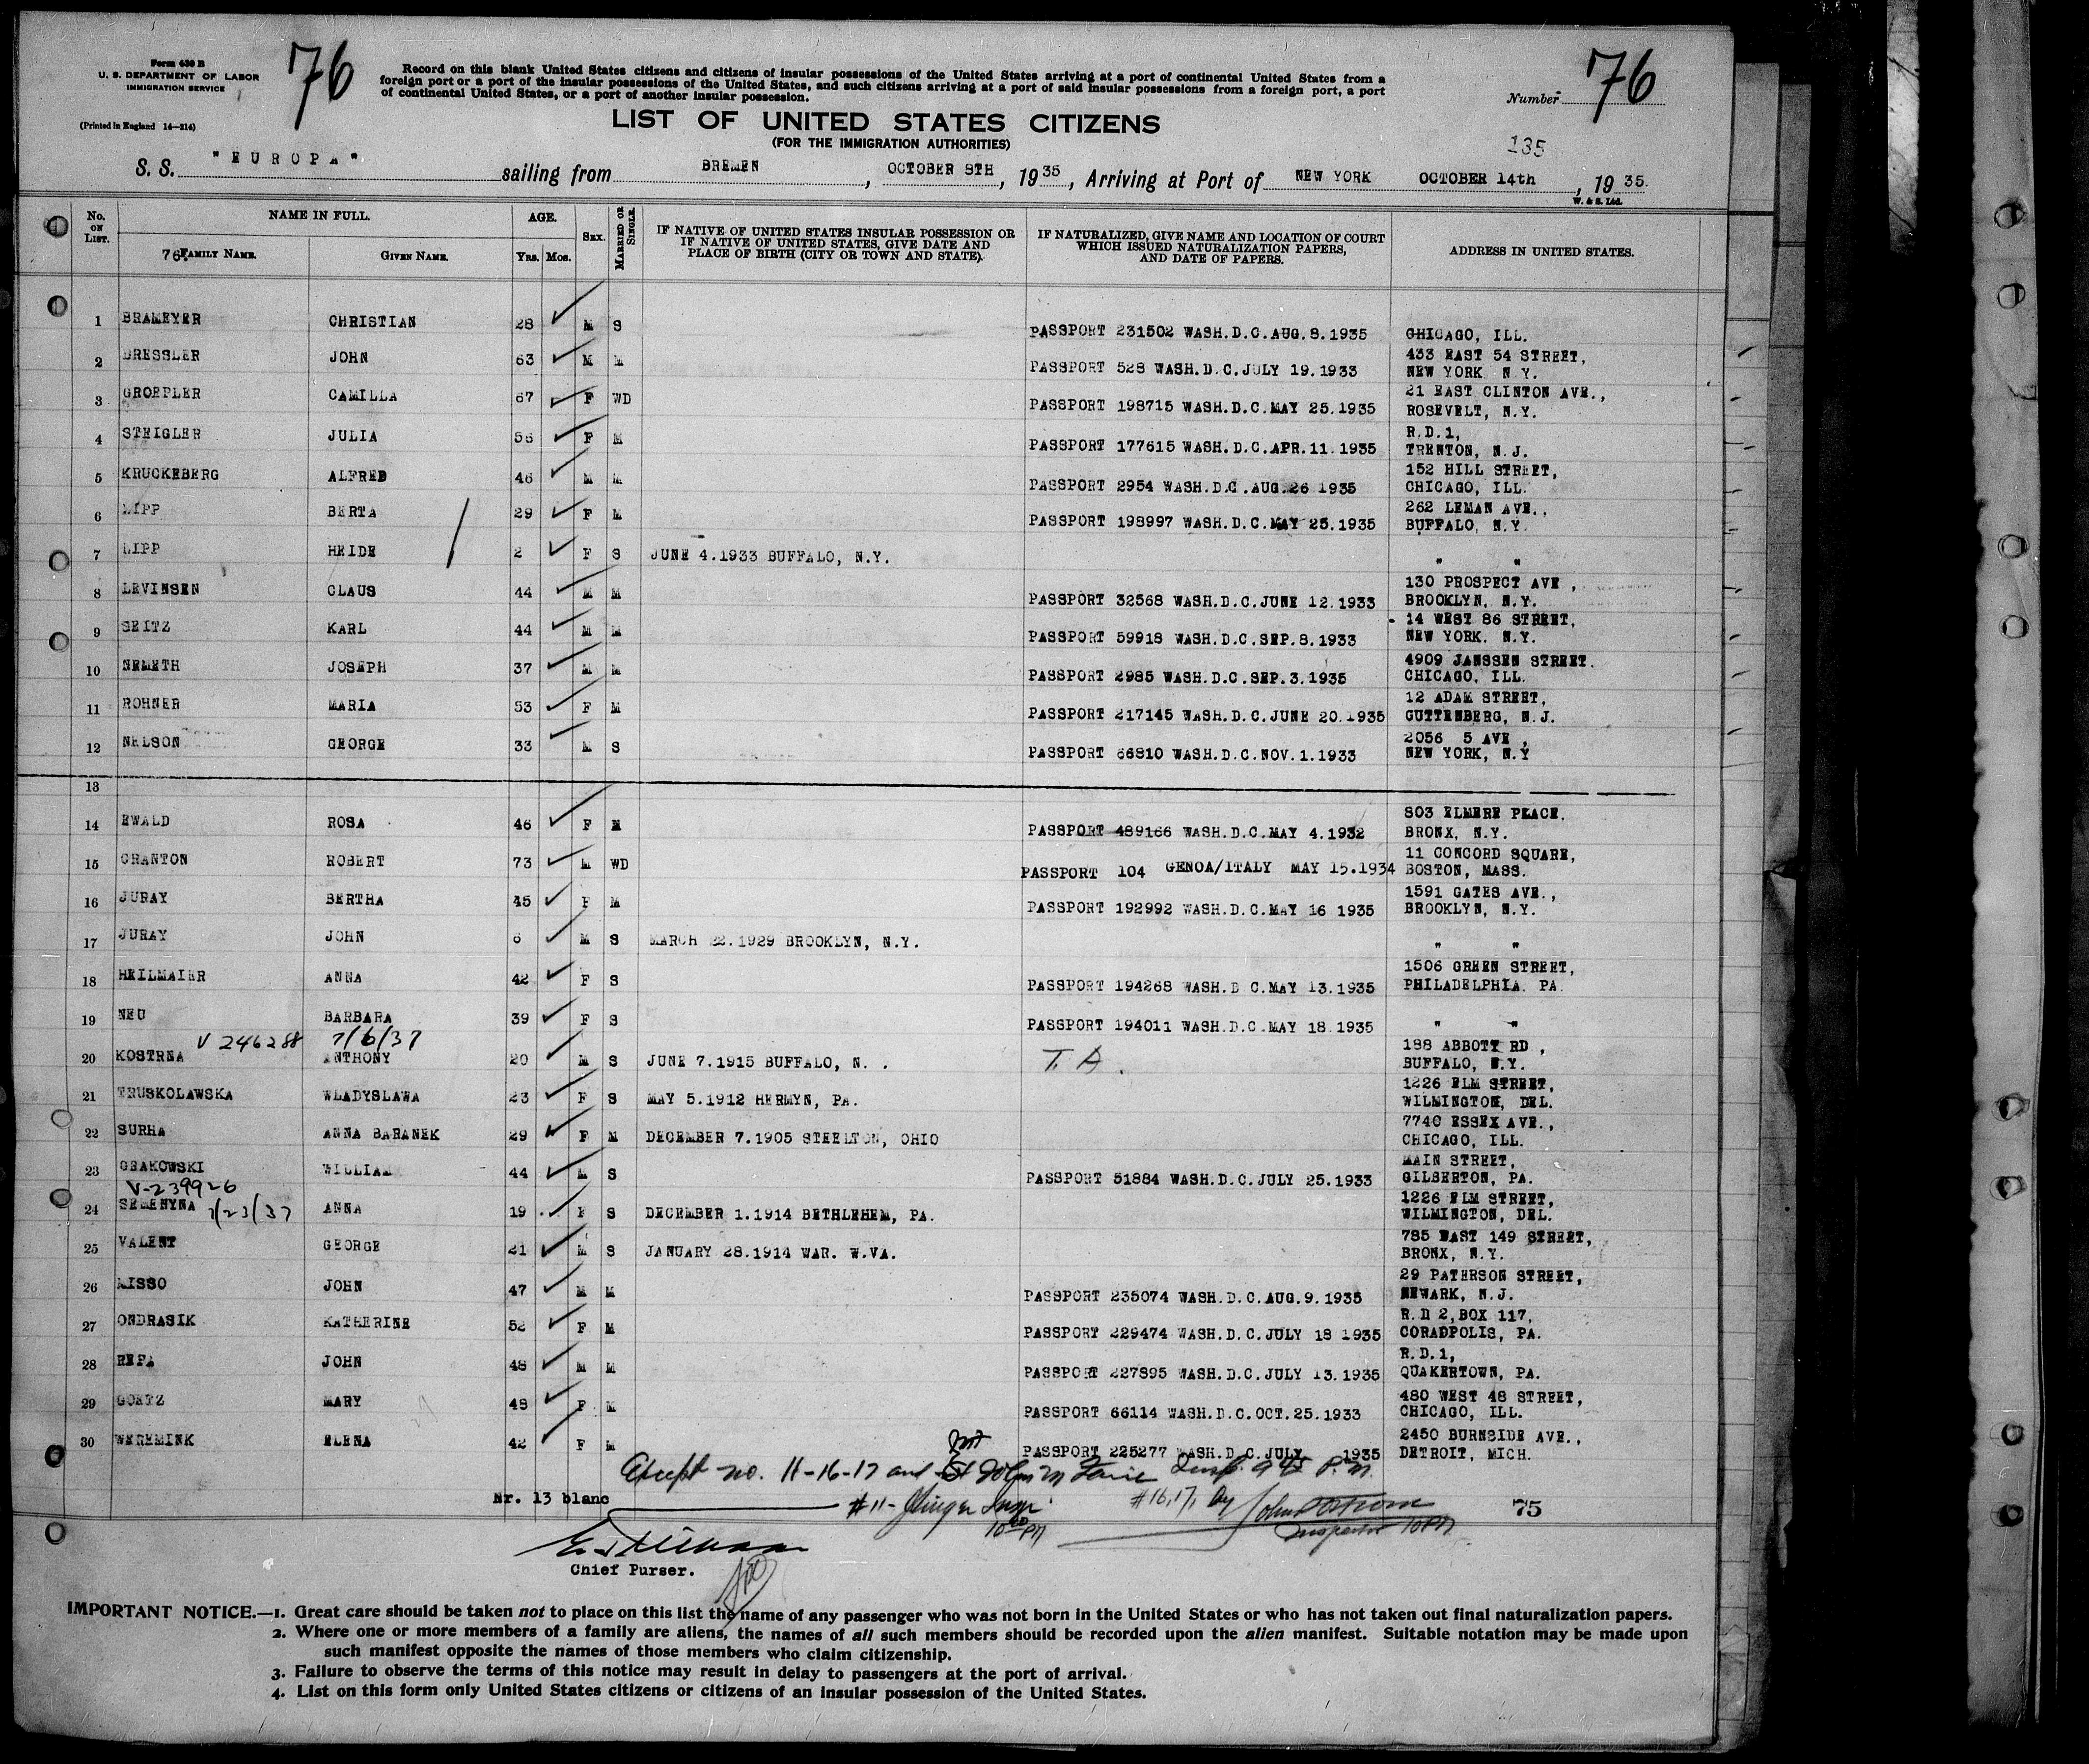 Form 630 B
U. S. DEPARTMENT OF LABOR
IMMIGRATION SERVICE
(Printed in England 14—214)
76
Record on this blank United States citizens and citizens of insular possessions of the United States arriving at a port of continental United States from a
foreign port or a port of the insular possessions of the United States, and such citizens arriving at a port of said insular possessions from a foreign port, a port
of continental United States, or a port of another insular possession.
Number 76
LIST OF UNITED STATES CITIZENS
(FOR THE IMMIGRATION AUTHORITIES)
135
S. S. "EUROPA" sailing from BREMEN, OCTOBER 8TH, 1935, Arriving at Port of NEW YORK OCTOBER 14th, 1935.
W. & S. Ltd.
No. ON LIST. NAME IN FULL. AGE. SEX. MARRIED OR SINGLE. IF NATIVE OF UNITED STATES INSULAR POSSESSION OR IF NATIVE OF UNITED STATES, GIVE DATE AND PLACE OF BIRTH (CITY OR TOWN AND STATE). IF NATURALIZED, GIVE NAME AND LOCATION OF COURT WHICH ISSUED NATURALIZATION PAPERS, AND DATE OF PAPERS. ADDRESS IN UNITED STATES.
76 FAMILY NAME. GIVEN NAME. Yrs. Mos.
1 BRAMEYER CHRISTIAN 28 M S PASSPORT 231502 WASH.D.C.AUG.8.1935 CHICAGO, ILL.
2 BRESSLER JOHN 63 M M PASSPORT 528 WASH.D.C.JULY 19.1933 433 EAST 54 STREET, NEW YORK N.Y.
3 GROEPLER CAMILLA 67 F WD PASSPORT 198715 WASH.D.C.MAY 25.1935 21 EAST CLINTON AVE., ROSEVELT, N.Y.
4 STEIGLER JULIA 56 F M PASSPORT 177615 WASH.D.C.APR.11.1935 R.D.1, TRENTON, N.J.
5 KRUCKEBERG ALFRED 46 M M PASSPORT 2954 WASH.D.C.AUG.26 1935 152 HILL STREET, CHICAGO, ILL.
6 LIPP BERTA 29 F M PASSPORT 198997 WASH.D.C.MAY 25.1935 262 LEMAN AVE., BUFFALO, N.Y.
7 LIPP HEIDE 2 F S JUNE 4.1933 BUFFALO, N.Y. " "
8 LEVINSEN CLAUS 44 M M PASSPORT 32568 WASH.D.C.JUNE 12.1933 130 PROSPECT AVE, BROOKLYN, N.Y.
9 SEITZ KARL 44 M M PASSPORT 59918 WASH.D.C.SEP.8.1933 14 WEST 86 STREET, NEW YORK. N.Y.
10 NEMETH JOSEPH 37 M M PASSPORT 2985 WASH.D.C.SEP.3.1935 4909 JANSSEN STREET. CHICAGO, ILL.
11 ROHNER MARIA 53 F M PASSPORT 217145 WASH.D.C.JUNE 20.1935 12 ADAM STREET, GUTTENBERG, N.J.
12 NELSON GEORGE 33 M S PASSPORT 66810 WASH.D.C.NOV.1.1933 2056 5 AVE, NEW YORK, N.Y
13
14 EWALD ROSA 46 F M PASSPORT 489166 WASH.D.C.MAY 4.1932 803 ELMERE PLACE, BRONX, N.Y.
15 CRANTON ROBERT 73 M WD PASSPORT 104 GENOA/ITALY MAY 15.1934 11 CONCORD SQUARE, BOSTON, MASS.
16 JURAY BERTHA 45 F M PASSPORT 192992 WASH.D.C.MAY 16 1935 1591 GATES AVE., BROOKLYN, N.Y.
17 JURAY JOHN 6 M S MARCH 22.1929 BROOKLYN, N.Y. " "
18 HEILMAIER ANNA 42 F S PASSPORT 194268 WASH.D C.MAY 13.1935 1506 GREEN STREET, PHILADELPHIA. PA.
19 NEU BARBARA 39 F S PASSPORT 194011 WASH.D.C.MAY 18.1935 " "
V 246288 7/6/37
20 KOSTRNA ANTHONY 20 M S JUNE 7.1915 BUFFALO, N. . T.A. 188 ABBOTT RD, BUFFALO, N.Y.
21 TRUSKOLAWSKA WLADYSLAWA 23 F S MAY 5.1912 HERMYN, PA. 1226 ELM STREET, WILMINGTON, DEL.
22 SURHA ANNA BARANEK 29 F M DECEMBER 7.1905 STEELTON, OHIO 7740 ESSEX AVE., CHICAGO, ILL.
23 GRAKOWSKI WILLIAM 44 M S PASSPORT 51884 WASH.D.C.JULY 25.1933 MAIN STREET, GILBERTON, PA.
V-239926 7/23/37
24 SEMENYNA ANNA 19 F S DECEMBER 1.1914 BETHLEHEM, PA. 1226 ELM STREET, WILMINGTON, DEL.
25 VALENT GEORGE 21 M S JANUARY 28.1914 WAR. W.VA. 785 EAST 149 STREET, BRONX, N.Y.
26 MISSO JOHN 47 M M PASSPORT 235074 WASH.D.C.AUG.9.1935 29 PATERSON STREET, NEWARK, N.J.
27 ONDRASIK KATHERINE 52 F M PASSPORT 229474 WASH.D.C.JULY 18 1935 R.D 2,BOX 117, CORADPOLIS, PA.
28 REPA JOHN 48 M M PASSPORT 227895 WASH.D.C.JULY 13.1935 R.D.1, QUAKERTOWN, PA.
29 GOETZ MARY 48 F M PASSPORT 66114 WASH.D.C.OCT.25.1933 480 WEST 48 STREET, CHICAGO, ILL.
30 WEREMINK ELENA 42 F M PASSPORT 225277 WASH.D.C.JULY 1935 2450 BURNSIDE AVE., DETROIT, MICH.
Except no. 11-16-17 and Insp. 9 45 P.M.
Nr. 13 blanc #11- Insp. 10 PM #16,17, by Inspector 10PM 75
Chief Purser.
IMPORTANT NOTICE.—1. Great care should be taken not to place on this list the name of any passenger who was not born in the United States or who has not taken out final naturalization papers.
2. Where one or more members of a family are aliens, the names of all such members should be recorded upon the alien manifest. Suitable notation may be made upon
such manifest opposite the names of those members who claim citizenship.
3. Failure to observe the terms of this notice may result in delay to passengers at the port of arrival.
4. List on this form only United States citizens or citizens of an insular possession of the United States.